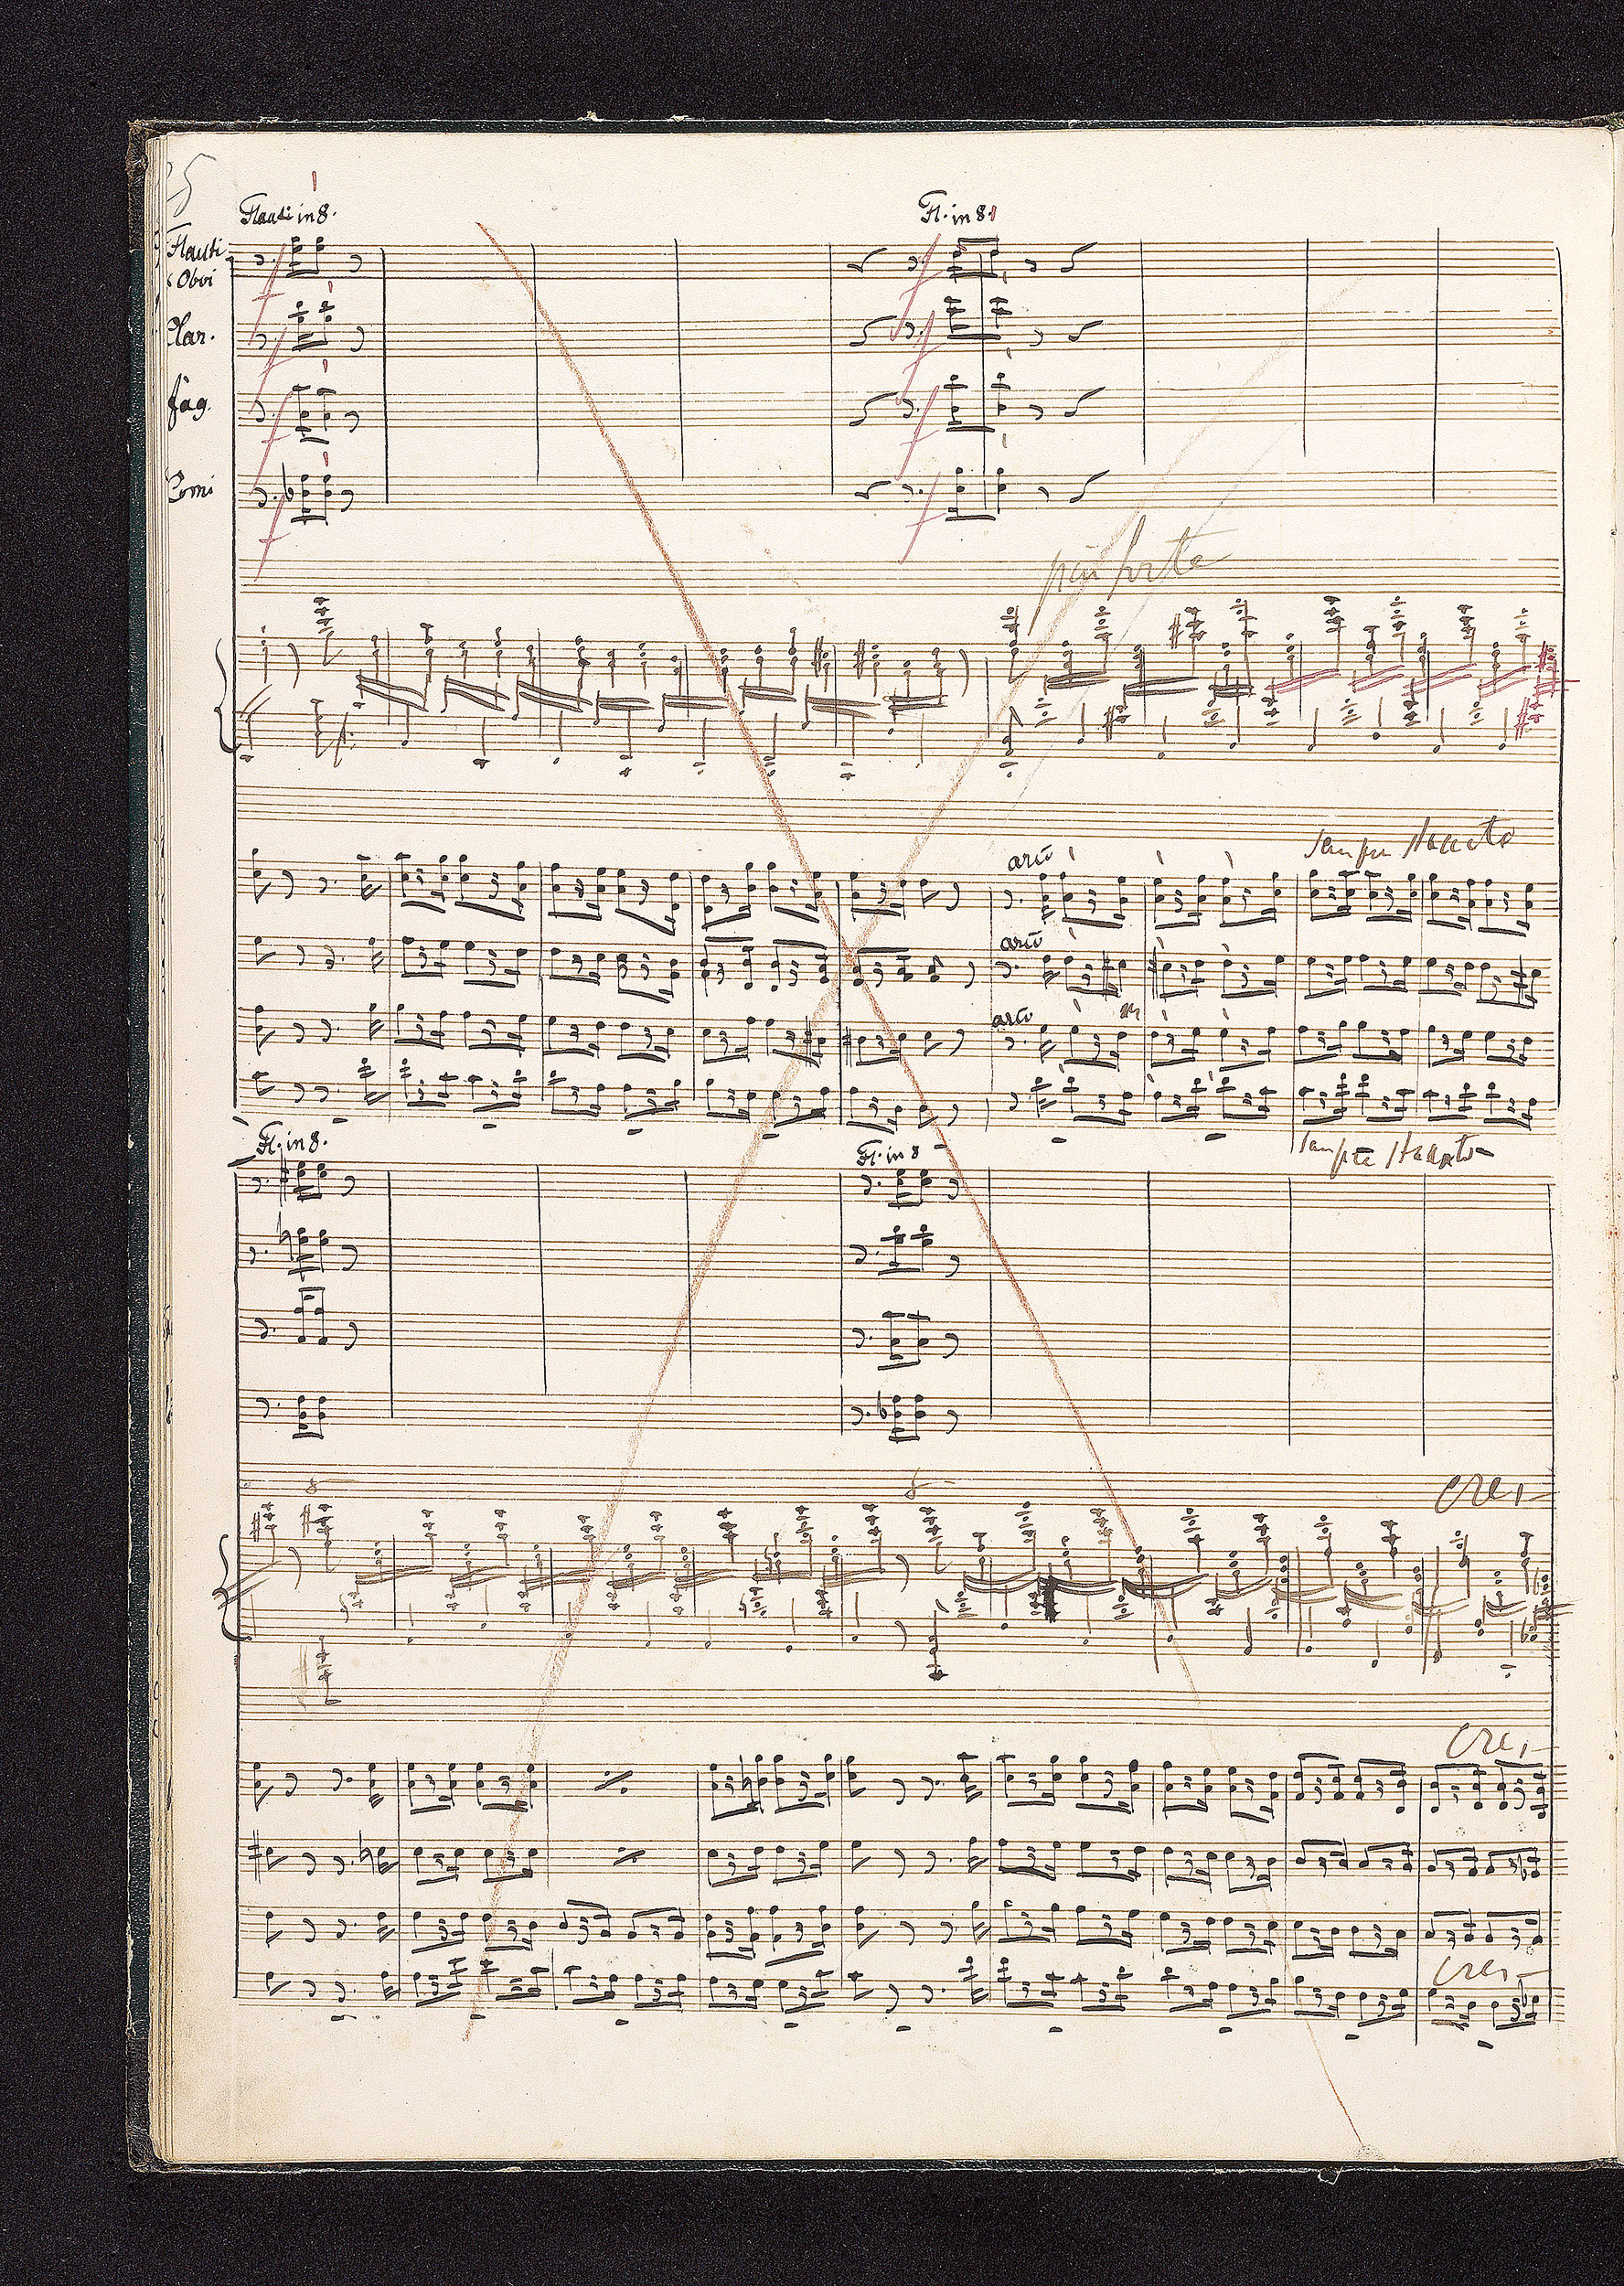 25
Flauti in 8.
Fl. in 8.
Flauti
Oboi
Clar.
fag.
Corni
f
f
f
f
f
f
f
f
più forte
arco
sempre staccato
arco
arco
sempre staccato
Fl. in 8.
Fl. in 8
8
8
cres
cres
cres